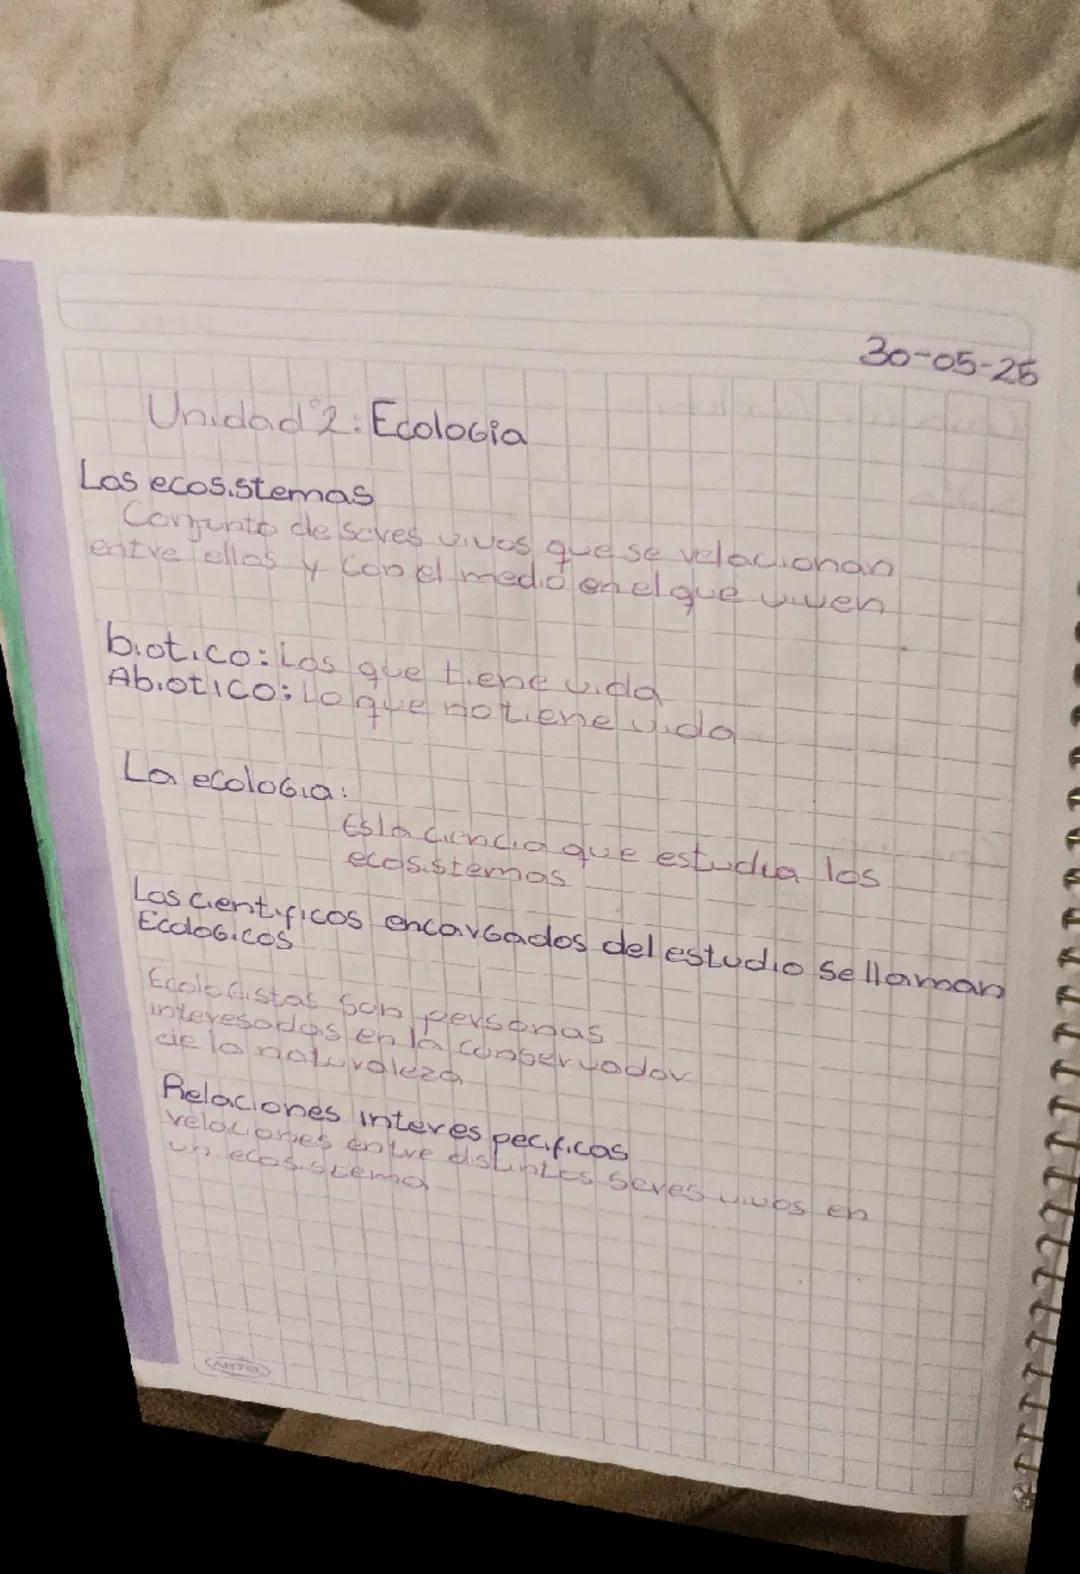 30-05-25
Unidad°2: Ecologia
Los ecosistemas
Conjunto de seres vivos que se relacionan
entre ellos y con el medio en el que viven
biotico: Los que tiene vida
Abiotico: Lo que no tiene vida
La ecologia:
Es la ciencia que estudia los
ecosistemas
Los cientificos encargados del estudio se llaman
Ecologicos
Ecologistas son personas
interesadas en la conservador
de la naturaleza
Relaciones interespecificas
relaciones entre distintos seres vivos en
un ecosistema
ARTEL